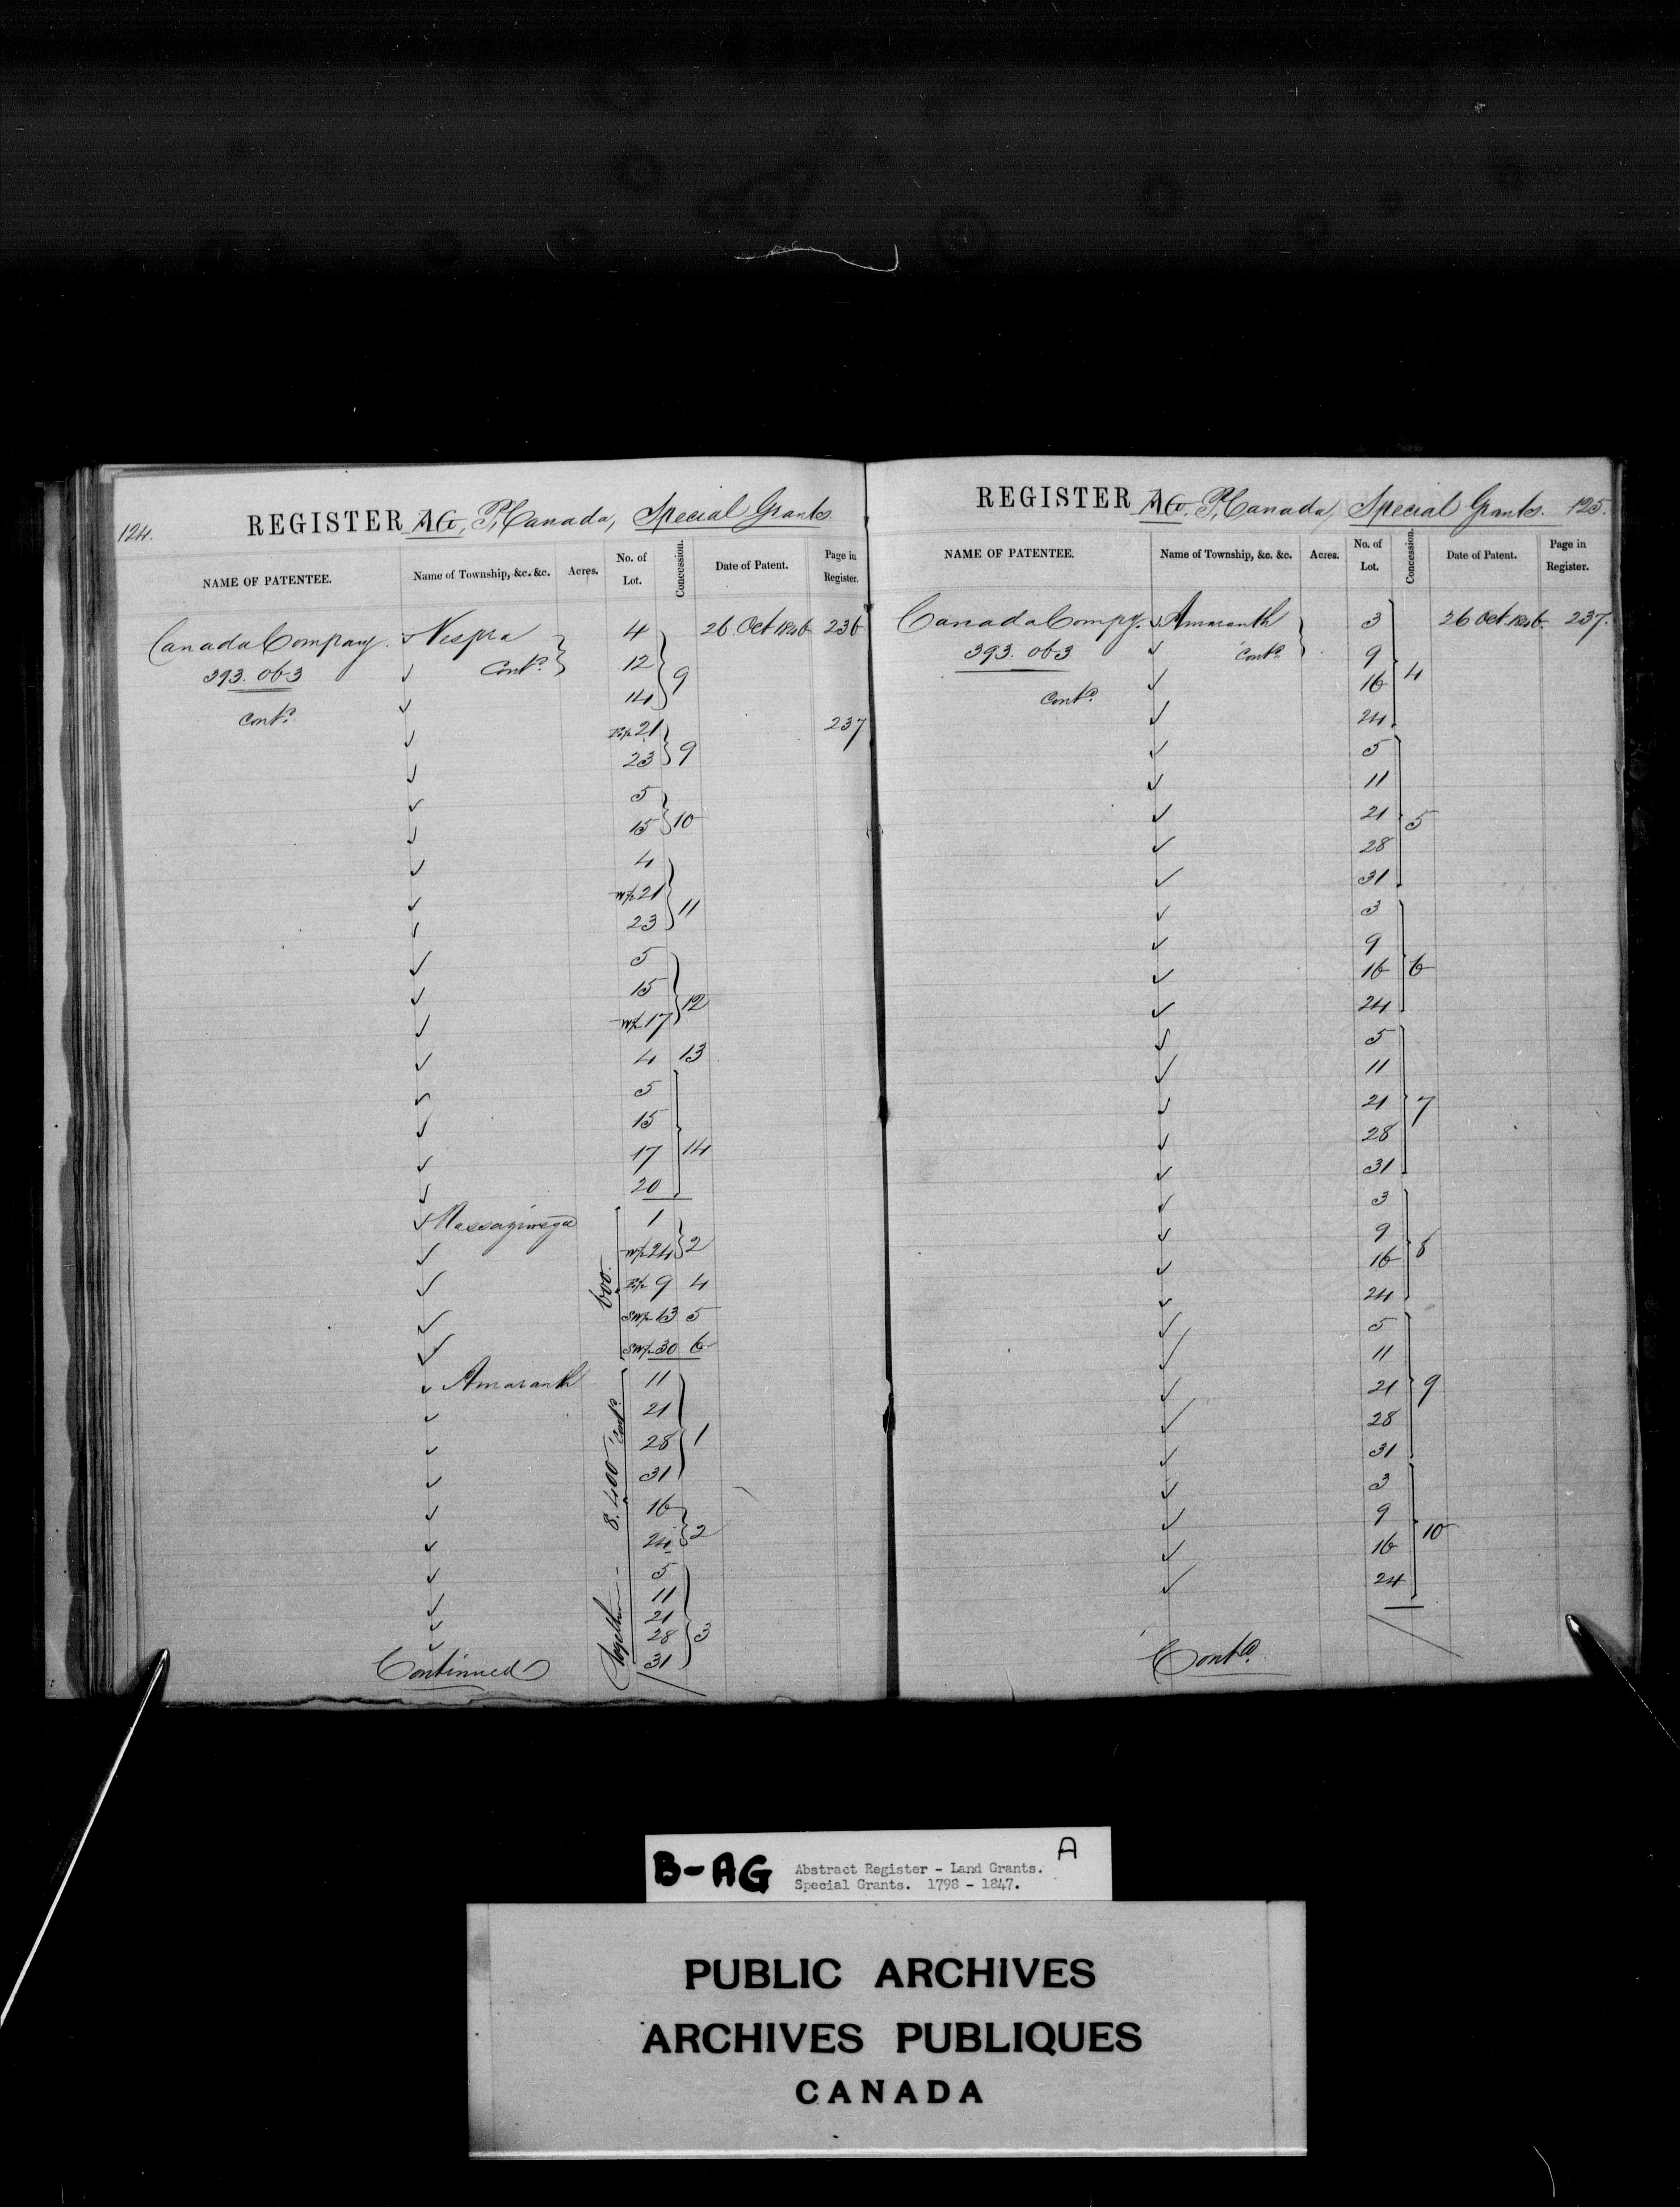 124. REGISTER AG, P, Canada, Special Grants.
NAME OF PATENTEE. Name of Township, &c. &c. Acres. No. of Lot. Concession. Date of Patent. Page in Register.
Canada Company. Vespra 4 26 Oct 1846 236
393.063 Contd. 12 9
Contd. 14
21 237
23 9
5
15 10
4
21
23 11
5
15
17 12
4 13
5
15
17 14
20
1
24 2
600. 9 4
13 5
30 6
Amaranth 11
21
28 1
31
16
24 2
5
11
21
28 3
31
Together - 8.400 Contd.
Continued
REGISTER AG, P, Canada, Special Grants. 125.
NAME OF PATENTEE. Name of Township, &c. &c. Acres. No. of Lot. Concession. Date of Patent. Page in Register.
Canada Compy. Amaranth 3 26 Oct 1846 237.
393.063 Contd. 9
Contd. 16 4
24
5
11
21 5
28
31
3
9
16 6
24
5
11
21 7
28
31
3
9
16 8
24
5
11
21 9
28
31
3
9
16 10
24
Contd.
B-AG Abstract Register - Land Grants. A
Special Grants. 1798 - 1847.
PUBLIC ARCHIVES
ARCHIVES PUBLIQUES
CANADA